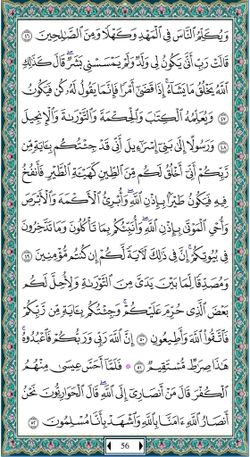 وَيُكَلِّمُ النَّاسَ فِي الْمَهْدِ وَكَهْلًا وَمِنَ الصَّالِحِينَ ٤٦
قَالَتْ رَبِّ أَنَّى يَكُونُ لِي وَلَدٌ وَلَمْ يَمْسَسْنِي بَشَرٌ قَالَ كَذَٰلِكِ
اللَّهُ يَخْلُقُ مَا يَشَاءُ إِذَا قَضَىٰ أَمْرًا فَإِنَّمَا يَقُولُ لَهُ كُن فَيَكُونُ
٤٧ وَيُعَلِّمُهُ الْكِتَابَ وَالْحِكْمَةَ وَالتَّوْرَاةَ وَالْإِنجِيلَ
٤٨ وَرَسُولًا إِلَىٰ بَنِي إِسْرَائِيلَ أَنِّي قَدْ جِئْتُكُم بِآيَةٍ مِّن
رَّبِّكُمْ أَنِّي أَخْلُقُ لَكُم مِّنَ الطِّينِ كَهَيْئَةِ الطَّيْرِ فَأَنفُخُ
فِيهِ فَيَكُونُ طَيْرًا بِإِذْنِ اللَّهِ وَأُبْرِئُ الْأَكْمَهَ وَالْأَبْرَصَ
وَأُحْيِي الْمَوْتَىٰ بِإِذْنِ اللَّهِ وَأُنَبِّئُكُم بِمَا تَأْكُلُونَ وَمَا تَدَّخِرُونَ
فِي بُيُوتِكُمْ إِنَّ فِي ذَٰلِكَ لَآيَةً لَّكُمْ إِن كُنتُم مُّؤْمِنِينَ ٤٩
وَمُصَدِّقًا لِّمَا بَيْنَ يَدَيَّ مِنَ التَّوْرَاةِ وَلِأُحِلَّ لَكُم
بَعْضَ الَّذِي حُرِّمَ عَلَيْكُمْ وَجِئْتُكُم بِآيَةٍ مِّن رَّبِّكُمْ
فَاتَّقُوا اللَّهَ وَأَطِيعُونِ ٥٠ إِنَّ اللَّهَ رَبِّي وَرَبُّكُمْ فَاعْبُدُوهُ
هَٰذَا صِرَاطٌ مُّسْتَقِيمٌ ٥١ فَلَمَّا أَحَسَّ عِيسَىٰ مِنْهُمُ
الْكُفْرَ قَالَ مَنْ أَنصَارِي إِلَى اللَّهِ قَالَ الْحَوَارِيُّونَ نَحْنُ
أَنصَارُ اللَّهِ آمَنَّا بِاللَّهِ وَاشْهَدْ بِأَنَّا مُسْلِمُونَ ٥٢
56